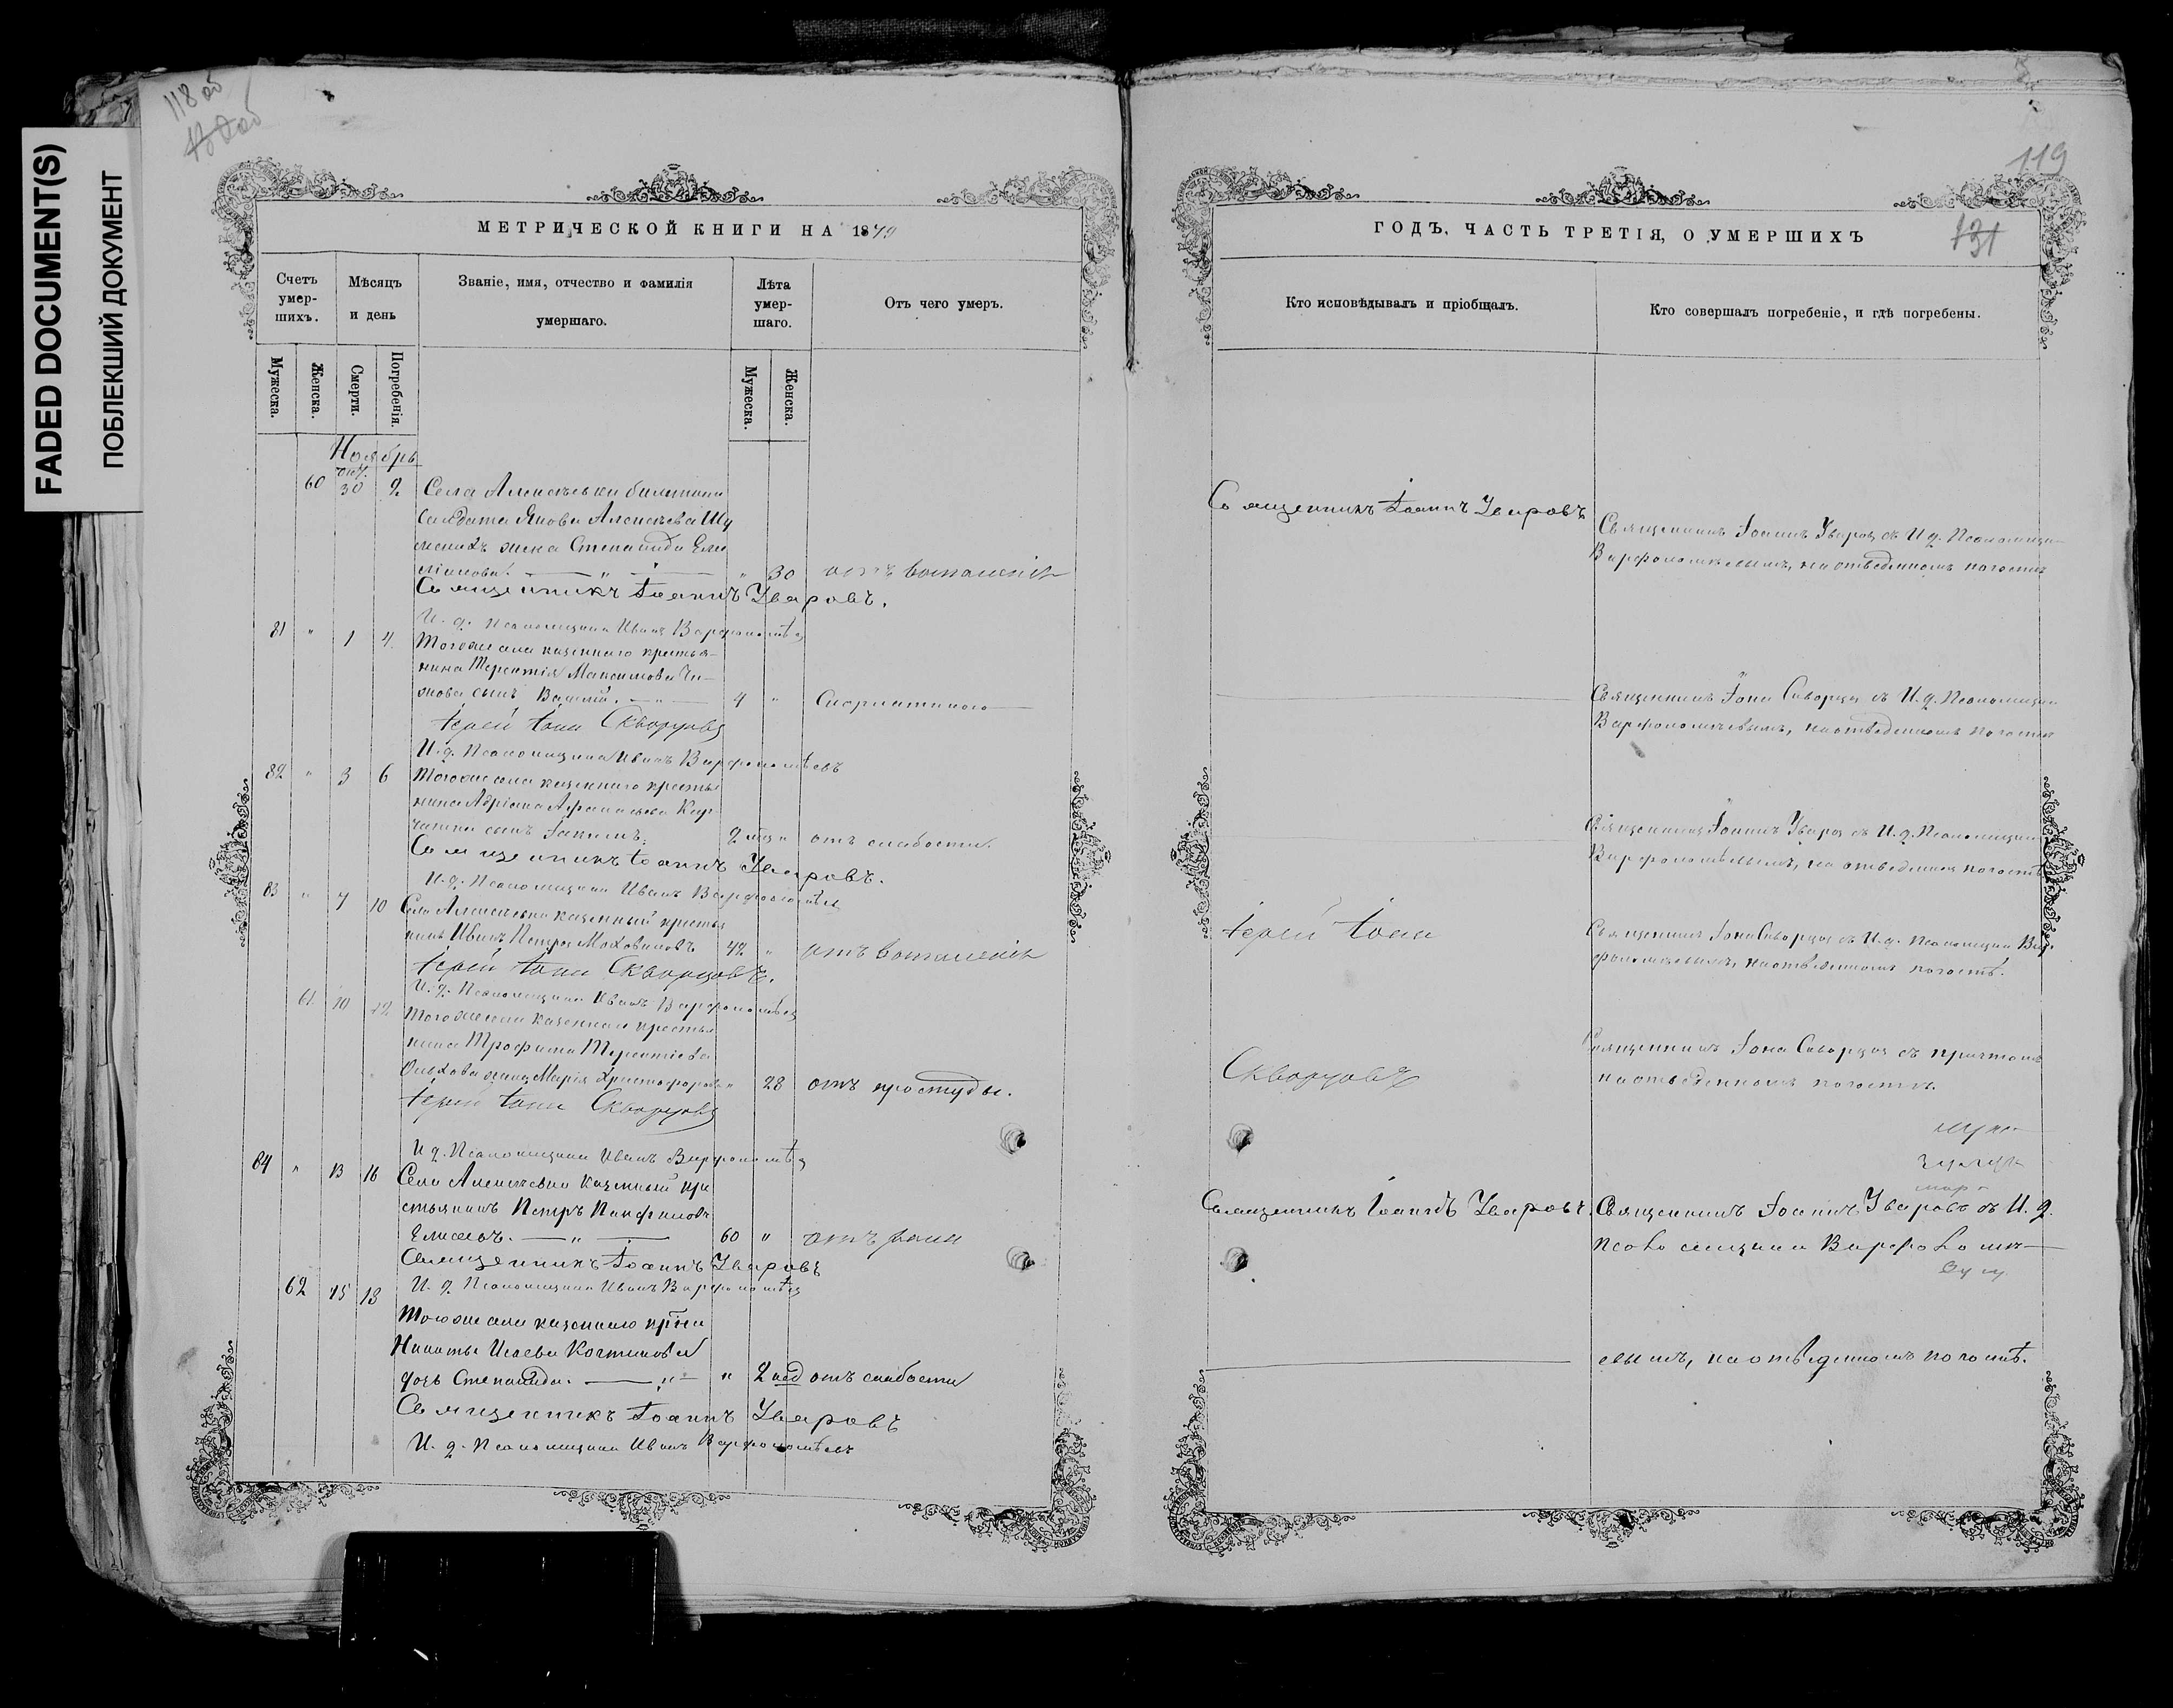 FADED DOCUMENT(S)
ПОБЛЕКШИЙ ДОКУМЕНТ
118 об
119
131
МЕТРИЧЕСКОЙ КНИГИ НА 1879
ГОДЪ, ЧАСТЬ ТРЕТІЯ, О УМЕРШИХЪ
Счетъ умер-шихъ.
Мѣсяцъ и день
Званіе, имя, отчество и фамилія умершаго.
Лѣта умер-шаго.
Отъ чего умеръ.
Кто исповѣдывалъ и пріобщалъ.
Кто совершалъ погребеніе, и гдѣ погребены.
Мужеска.
Женска.
Смерти.
Погребенія.
Мужеска.
Женска.
Ноябрь
60 окт. 30 2 Села Алексѣевки
Солдата Якова Алексѣева
жена Степанида Еме
ліанова. " 30 отъ воспаленія
Священникъ Іоаннъ Уваровъ
Священникъ Іоаннъ Уваровъ съ И. д. Псаломщи
Варфоломѣевымъ, на отведенномъ погостѣ
Священникъ Іоаннъ Уваровъ.
И. д. Псаломщика Иванъ Варфоломѣевъ
81 " 1 4 Тогоже села казеннаго крестья-
нина Терентія Максимова
сынъ Василій. 4 "
Священникъ Іона Скворцовъ съ И. д. Псаломщик
Варфоломѣевымъ, на отведенномъ погостѣ
Іерей Іона Скворцовъ
И. д. Псаломщика Иванъ Варфоломѣевъ
82 " 3 6 Тогоже села казеннаго крестья
нина Адріана Афанасьева
сынъ 2 мѣс " отъ слабости.
Священникъ Іоаннъ Уваровъ съ И. д. Псаломщик
Варфоломѣевымъ, на отведенномъ погостѣ
Священникъ Іоаннъ Уваровъ.
И. д. Псаломщика Иванъ Варфоломѣевъ
83 " 7 10 Села Алексѣевки казенный крестья
нинъ Иванъ Петровъ Моховиковъ 42 " отъ воспаленія
Іерей Іона
Священникъ Іона Скворцовъ съ И. д. Псаломщика Вар
фоломѣевымъ, на отведенномъ погостѣ.
Іерей Іона Скворцовъ.
И. д. Псаломщика Иванъ Варфоломѣевъ
61 10 12 Тогоже села казеннаго крестья
нина Трофима Терентіева
Ольхова жена Марія Христофорова " 28 отъ простуды.
Скворцовъ
Священникъ Іона Скворцовъ съ причтомъ
на отведенномъ погостѣ.
Іерей Іона Скворцовъ
И. д. Псаломщика Иванъ Варфоломѣевъ
84 " 13 16 Села Алексѣевки казенный кре
стьянинъ Петръ Панфиловъ
Елисеевъ. 60 "
Священникъ Іоаннъ Уваровъ.
Священникъ Іоаннъ Уваровъ съ И. д.
псаломщика Варфоломѣ-
Священникъ Іоаннъ Уваровъ
И. д. Псаломщика Иванъ Варфоломѣевъ
62 15 18
Тогоже села казеннаго кр-на
Никиты Исаева
дочь Степанида. " 2 нед отъ слабости
евымъ, на отведенномъ погостѣ.
Священникъ Іоаннъ Уваровъ
И. д. Псаломщика Иванъ Варфоломѣевъ